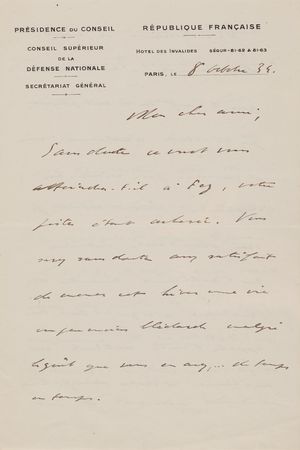 PRÉSIDENCE DU CONSEIL
CONSEIL SUPÉRIEUR
DE LA
DÉFENSE NATIONALE
SECRÉTARIAT GÉNÉRAL
RÉPUBLIQUE FRANÇAISE
HOTEL DES INVALIDES SÉGUR-81-62 & 81-63
PARIS, LE 8 octobre 34.
Mon cher ami,
Sans doute ce mot vous
atteindra-t-il à Fez, votre
étant achevée. Vous
sans doute satisfait
de mener cet hiver une vie
un peu moins malgré
le goût que vous en avez,... de temps
en temps.